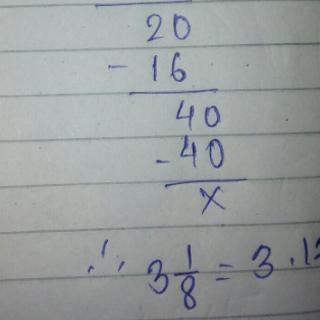 20
- 16
40
- 40
x
∴ 3 1/8 = 3.12